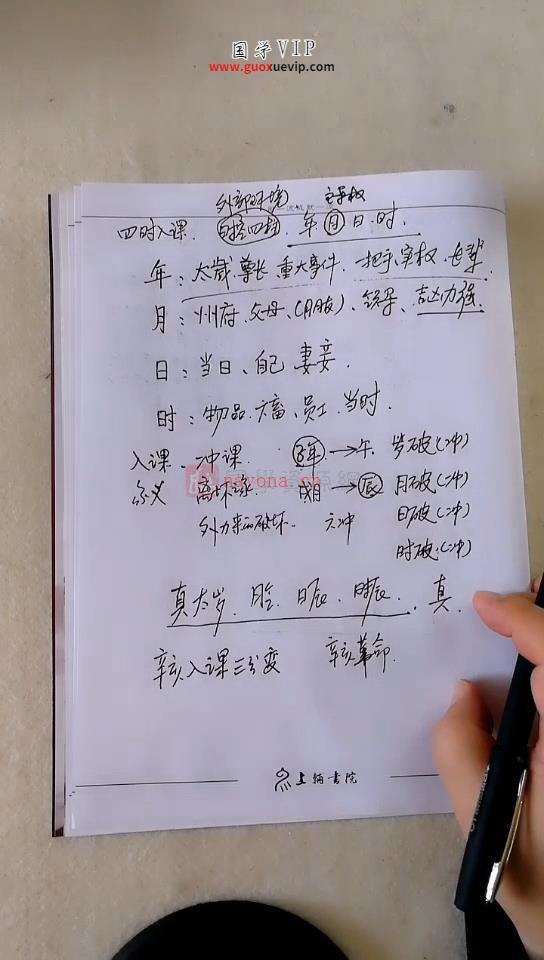 国学VIP
www.guoxuevip.com
外部环境 主导权
四时入课. 四柱. 年月日.时.
年: 太岁.尊长 重大事件. 一把手.实权.长辈
月: 州府.父母、(月服). 领导、吉凶力强.
日: 当日、自己 妻妾.
时: 物品.六畜、员工.当时.
入课 冲课 年→午 岁破(冲)
含义 月→辰 月破(冲)
外力来的破坏. 六冲 日破(冲)
时破:(冲)
国学资源網
nayona.cn
真太岁. 月 日辰. 时辰. 真.
辛亥入课三分变 辛亥革命.
上 书院